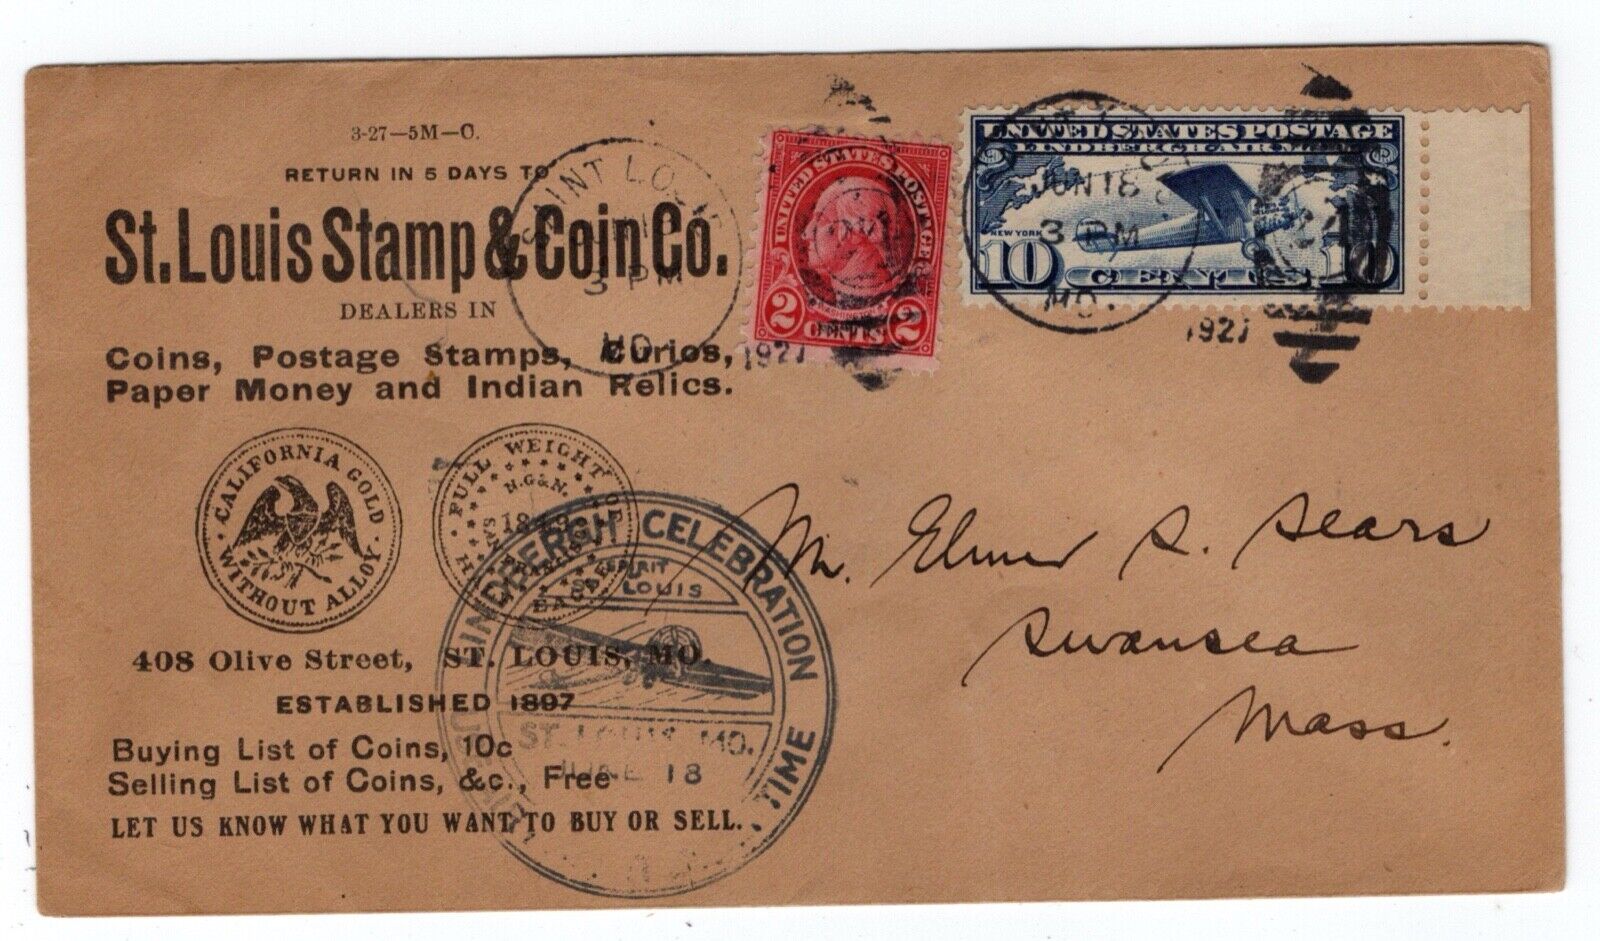 3-27—5M—C.
RETURN IN 5 DAYS TO
St. Louis Stamp & Coin Co.
DEALERS IN
Coins, Postage Stamps, Curios,
Paper Money and Indian Relics.
CALIFORNIA GOLD
WITHOUT ALLOY
FULL WEIGHT OF
N.G&N.
408 Olive Street, ST. LOUIS, MO.
ESTABLISHED 1897
Buying List of Coins, 10c
Selling List of Coins, &c., Free
LET US KNOW WHAT YOU WANT TO BUY OR SELL.
SAINT LOUIS
3 PM
MO.
1927
UNITED STATES POSTAGE
2 CENTS 2
UNITED STATES POSTAGE
LINDBERGH AIR MAIL
NEW YORK
10 CENTS 10
JUN 18
3 PM
MO.
1927
LINDBERGH CELEBRATION
SPIRIT
ST. LOUIS
ST. LOUIS, MO.
JUNE 18
TIME
Mr. Elmer S. Sears
Swansea
Mass.